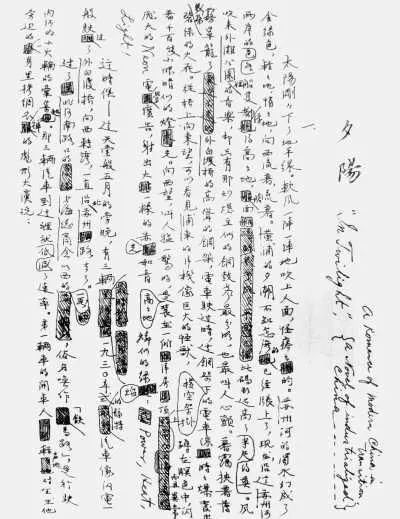 夕陽
"In Twilight" (a Novel of industrialized China ......)
A Romance of modern China in transition
一、
太陽剛剛下了地平線。軟風一陣一陣地吹上人面，怪癢癢的。蘇州河的濁水幻成了
金綠色，輕輕地，悄悄地，向西流去。黃浦的夕潮不知怎的已經漲上了，現在沿這蘇州河
兩岸的各色船都浮得高高地，艙面比碼頭還高了半尺。風
吹來外灘公園的音樂，卻只有那炒豆似的銅鼓聲最分明，也最叫人心興奮。暮靄挾着薄霧
籠罩了外白渡橋的高聳的鋼架，電車駛過時，這鋼架下橫空架掛的電車線時時爆發出幾朵
碧綠的火花。從橋上向東望，可以看見浦東的洋棧像巨大的怪獸，蹲在暝色中，閃
着千百隻小眼睛似的燈火。向西望，叫人猛一驚的，是高高地裝在一所洋房頂上而且異常
龐大的Neon電管廣告，射出火一樣的赤光和青燐似的綠焰：Light, Heat, Power!
這時候——這天堂般五月的傍晚，有三輛一九三〇年式的汽車像閃電一
般駛過了外白渡橋，向西轉彎，一直沿北蘇州路去了。
過了北河南路口的上海總商會以西的一段，俗名喚作「鐵馬路」，是行駛
內河的小火輪的匯集處。那三輛汽車到這裡就低減了速率。第一輛車的開車人輕聲地對坐在他
旁邊的穿一身黑拷綢衣褲的彪形大漢說：